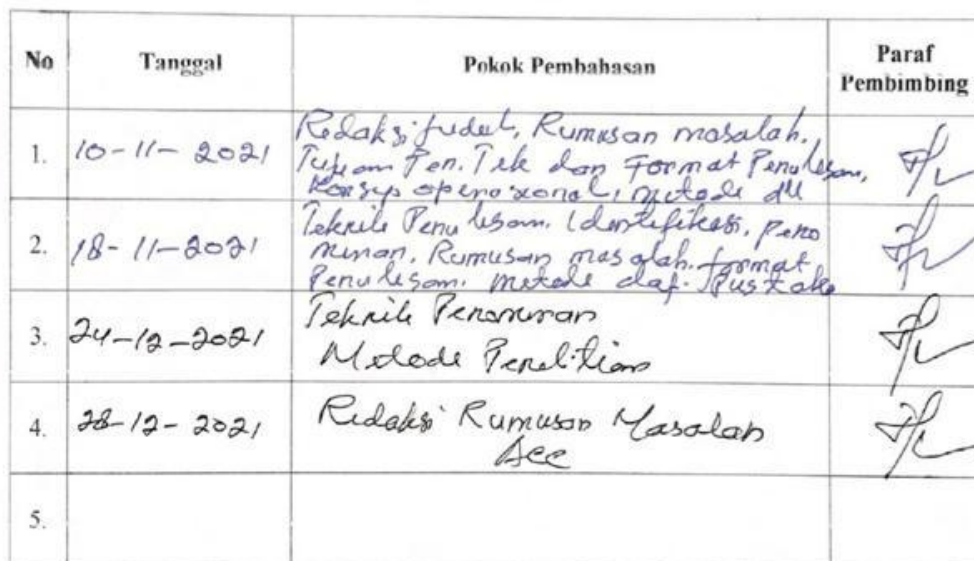 No Tanggal Pokok Pembahasan Paraf Pembimbing
1. 10-11-2021 Redaksi judul, Rumusan masalah.
Tujuan Pen. Tek dan Format Penulisan,
Konsep operasional, metode dll
2. 18-11-2021 Teknik Penulisan. Identifikasi, peno
minan, Rumusan masalah. format
Penulisan. metode daf. Pustaka
3. 24-12-2021 Teknik Penomoran
Metode Penelitian
4. 28-12-2021 Redaksi Rumusan Masalah
Acc
5.